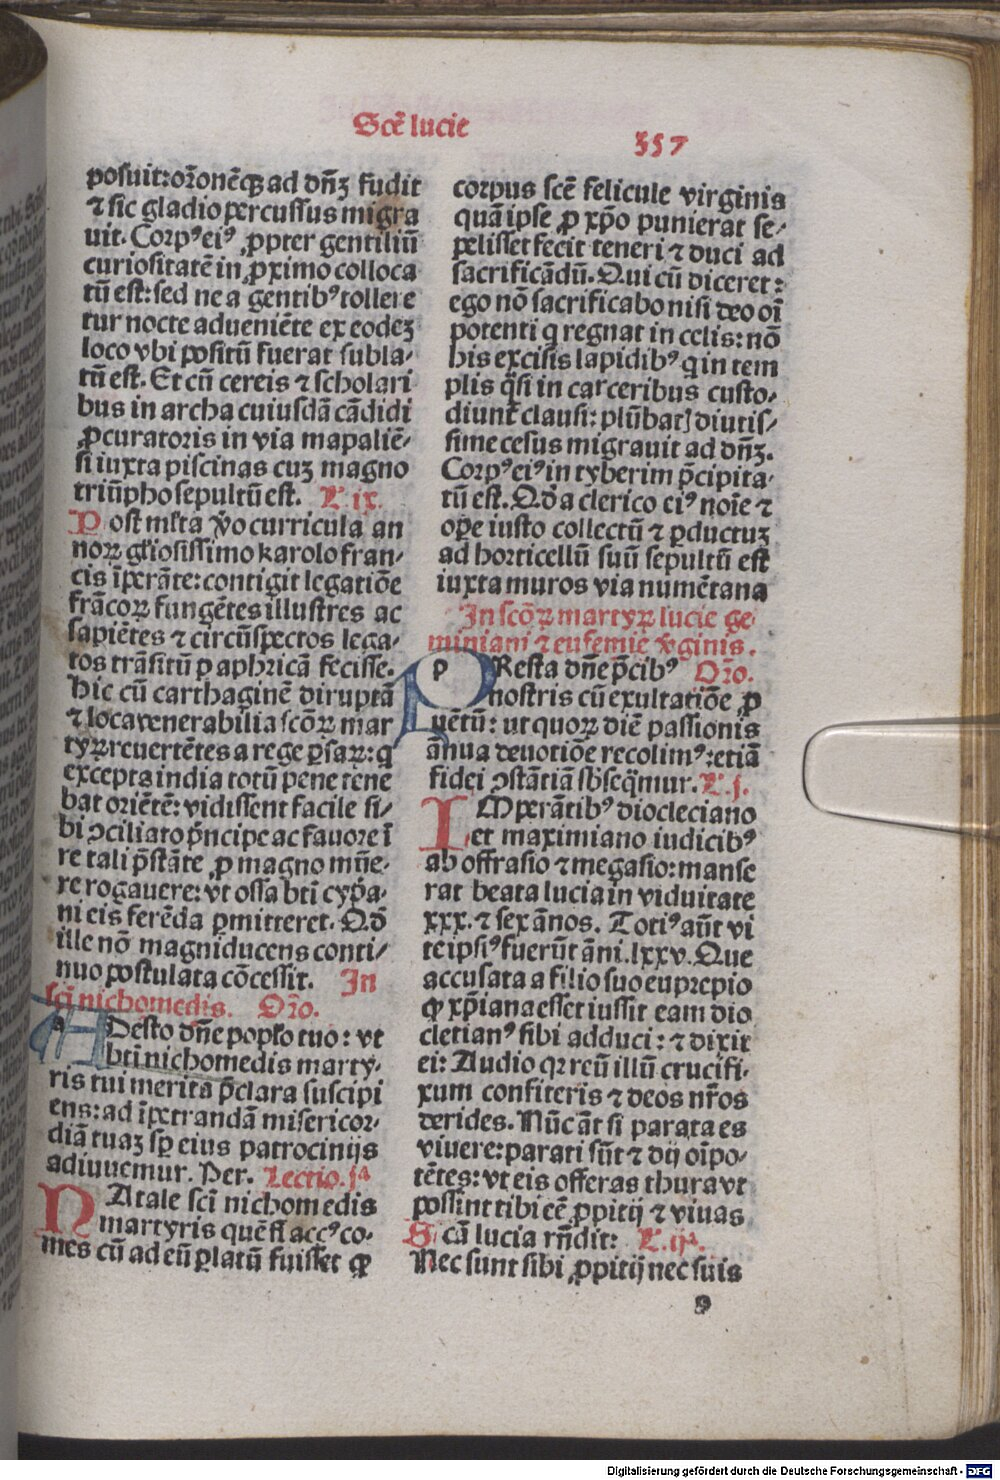 Scē lucie
357
posuit: orōnēqꝫ ad dn̄ꝫ fudit
⁊ sic gladio percussus migra
uit. Corpꝰ eiꝰ ꝓpter gentiliū
curiositatē in ꝓximo colloca
tū est: sed ne a gentibꝰ tollere
tur nocte adueniēte ex eodeꝫ
loco vbi positū fuerat subla⸗
tū est. Et cū cereis ⁊ scholari
bus in archa cuiusdā cādidi
ꝓcuratoris in via mapaliē⸗
si iuxta piscinas cuꝫ magno
triūpho sepultū est. L̕ ix.
Post ml̕ta v̕o curricula an
noꝝ gl̕iosissimo karolo fran⸗
cis īperāte: contigit legatiōe
frācoꝝ fungētes illustres ac
sapiētes ⁊ circūspectos lega⸗
tos trāsitū ꝑ aphricā fecisse.
Hic cū carthaginē diruptā
⁊ loca venerabilia scōꝝ mar
tyꝝ reuertētes a rege ꝑsaꝝ: q̄
excepta india totū pene tene
bat oriētē: vidissent facile si⸗
bi ꝯciliato p̄ncipe ac fauore ī
re tali p̄stāte ꝓ magno mūe⸗
re rogauere: vt ossa bt̄i cyp̄a⸗
ni eis ferēda ꝑmitteret. Qd̄
ille nō magniducens conti⸗
nuo postulata cōcessit. In
sci̅ nichomedis. Or̄o.
ADesto dn̄e popl̕o tuo: vt
bt̄i nichomedis marty⸗
ris tui merita p̄clara suscipi
ens: ad īpetrandā misericor⸗
diā tuaꝫ sꝑ eius patrocinijs
adiuuemur. Per. Lectio. jᵃ
NAtale sci̅ nichomedis
martyris quē flaccꝰ co⸗
mes cū ad eū ꝑlatū fuisset ꝙ
corpus scē felicule virginis
quā ipse ꝓ xp̄o punierat se⸗
pelisset fecit teneri ⁊ duci ad
sacrificādū. Qui cū diceret:
ego nō sacrificabo nisi deo oī
potenti q̇ regnat in celis: nō
his excisis lapidibꝰ q̇ in tem
plis q̄si in carceribus custo⸗
diunt̄ clausi: plūbatꝭ diutis⸗
sime cesus migrauit ad dn̄ꝫ.
Corpꝰ eiꝰ in tyberim p̄cipita⸗
tū est. Qd̄ a clerico eiꝰ noīe ⁊
oꝑe iusto collectū ⁊ ꝑductuꝫ
ad horticellū suū sepultū est
iuxta muros via numētana
In scōꝝ martyꝝ lucie ge⸗
miniani ⁊ eufemie v̕ginis.
PResta dn̄e p̄cibꝰ Or̄o.
nostris cū exultatiōe ꝓ
uētū: ut quoꝝ diē passionis
ānua deuotiōe recolimꝰ: etiā
fidei ꝯstātiā sb̄seq̄mur. L̕. j.
IMperātibꝰ diocleciano
et maximiano iudicibꝰ
ab offrasio ⁊ megasio: manse
rat beata lucia in viduitate
xxx. ⁊ sex ānos. Totiꝰ aūt vi
te ipsiꝰ fuerūt āni. lxxv. Que
accusata a filio suo euprepio
ꝙ xp̄iana esset iussit eam dio
cletianꝰ sibi adduci: ⁊ dixit
ei: Audio qꝛ reū illū crucifi⸗
xum confiteris ⁊ deos nr̄os
derides. Nūc āt si parata es
viuere: parati sūt ⁊ dij oīpo⸗
tētes: vt eis offeras thura vt
possint tibi eē ꝓpitij ⁊ viuas
Scā lucia rn̄dit: L̕. ijᵃ.
Nec sunt sibi ꝓpitij nec suis
9
Digitalisierung gefördert durch die Deutsche Forschungsgemeinschaft - DFG